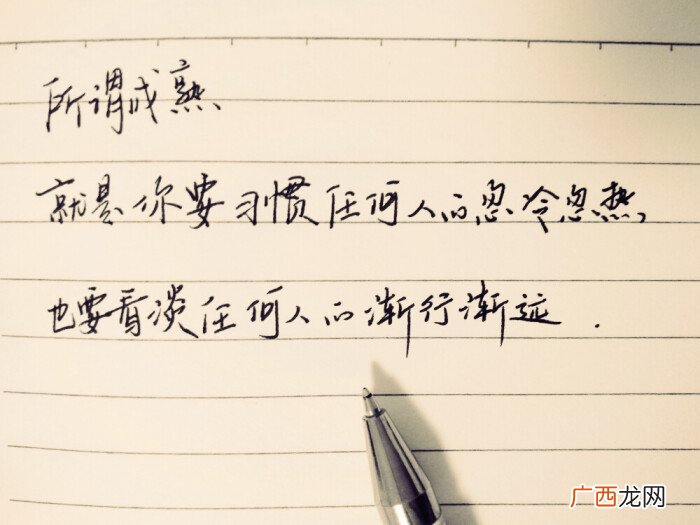 所谓成熟
就是你要习惯任何人的忽冷忽热,
也要看淡任何人的渐行渐远.
广西龙网